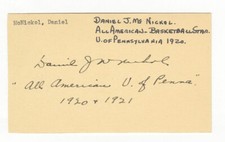 McNickel, Daniel
DANIEL J. MC NICKOL.
ALL AMERICAN - BASKETBALL STAR.
U. OF PENNSYLVANIA 1920.
Daniel J McNichol
"All American U. of Penna"
1920 + 1921